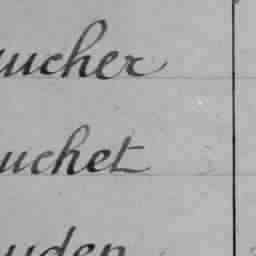 ucher
uchet
uden